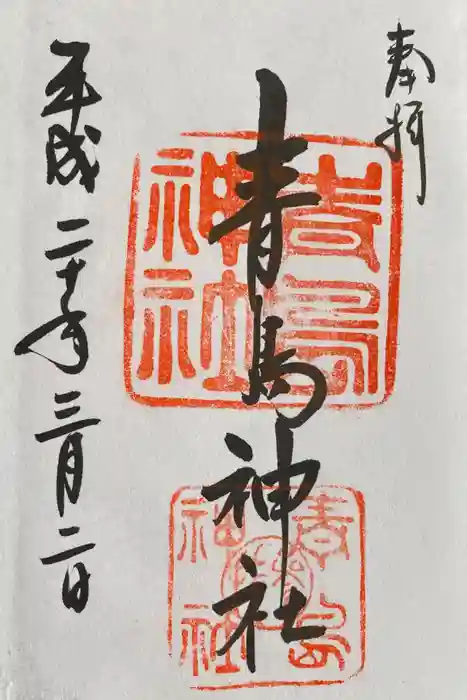 奉拝
青島神社
青島
神社
青島
神社
平成二十年三月二日